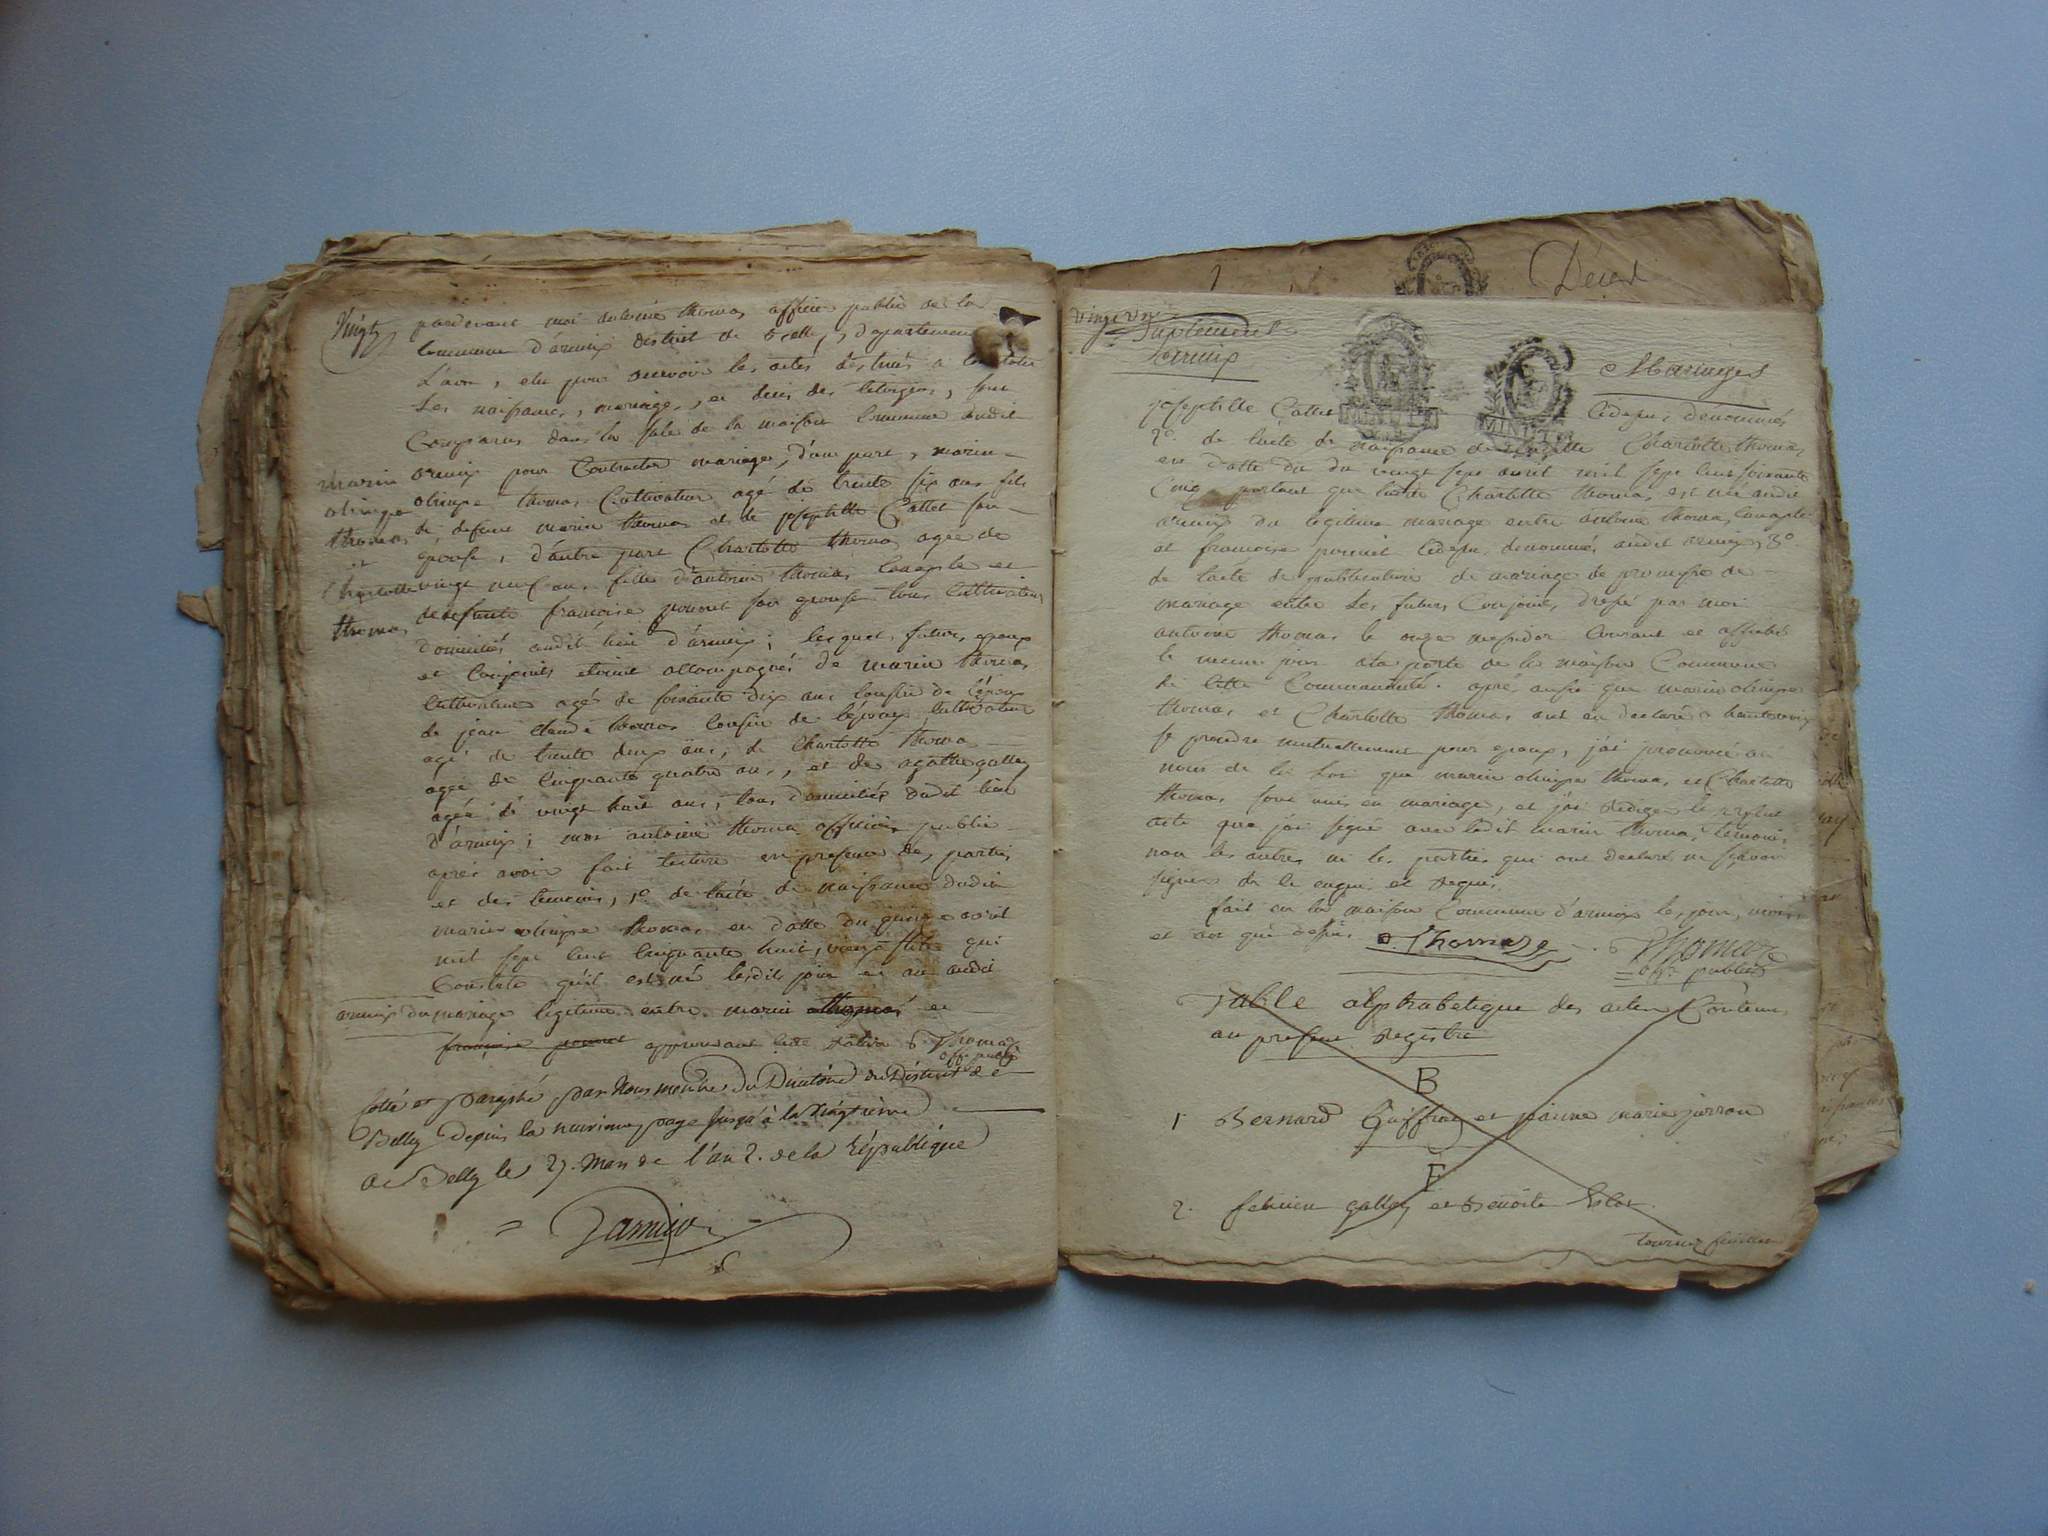 Vingt
pardevant moi antoine thomas officier public de la
commune d'armix district de Belley, departement
L'ain, elu pour recevoir les actes destinés a constater
Les naissances, mariages, et deces des citoyens, sont
Comparus dans la sale de la maison Commune dudit
armix pour Contracter mariage, d'une part, marin
olimpe thomas Cultivateur agé de trente six ans fils
de, defunt marin thomas et de josephtte Cattet son
epouse, d'autre part Charlotte thomas agee de
vingt neuf ans fille d'antoine thomas et
de defunte francoise ponnet son epouse tous Cultivateurs
marin
olimpe
thomas
et
Charlotte
thomas
domiciliés audit lieu d'armix; lesquels futurs epoux
et Conjoints etoient accompagnés de marin thomas
Cultivateur agé de soixante dix ans Cousin de l'époux
de jean claude thomas Cousin de l'époux Cultivateur
agé de trente deux ans, de Charlotte thomas
agée de Cinquante quatre ans, et de agathe gallay
agée de vingt huit ans, tous domiciliés dudit lieu
d'armix; moi antoine thomas officier public
après avoir fait lecture en presence des parties
et des temoins, 1º de l'acte de naissance dudit
marin olimpe thomas en datte du quinze avril
mil sept cent Cinquante huit, vieux stile qui
Constate qu'il est né lesdits jour et an audit
armix du mariage legitime entre marin thomas et
francoise ponnet approuvant cette rature Thomas
off. public
Cotté et Paraphé par Nous membre Du Directoire du District de
Belley Depuis la premiere page jusqu'à la vingtieme
a Belley le 27. Mars de l'an 2. de la République
vingt un
armix
Mariages
MINUTE
MINUTE
josephtte Cattet Cidessus denommés
2º. de l'acte de naissance de Charlotte thomas
en datte du du vingt sept avril mil sept cent soixante
Cinq portant que ladite Charlotte thomas est née audit
armix du legitime mariage entre antoine thomas
et francoise ponnet Cidessus denommés audit armix, 3º.
de l'acte de publication de mariage de promesse de
mariage entre Les futurs Conjoints, dressé par moi
antoine thomas le onze messidor Courant et affiché
le meme jour a la porte de la maison Commune
de cette Communauté. après aussi que marin olimpe
thomas et Charlotte thomas ont eu declaré a haute voix
se prendre mutuellement pour epoux, j'ai prononcé au
nom de la Loi que marin olimpe thomas et Charlotte
thomas sont unis en mariage, et j'ai redigé le present
acte que j'ai signé avec ledit marin thomas temoin,
non les autres ni les parties qui ont declaré ne sçavoir
signer de ce enquis et requis.
fait en la maison Commune d'armix les jour, mois
et an que dessus Thomas Thomas
off. public
Table alphabetique des actes Contenus
au present Registre
B
1 Bernard Guiffray et marie
F
2. felicien gallay et Benoite